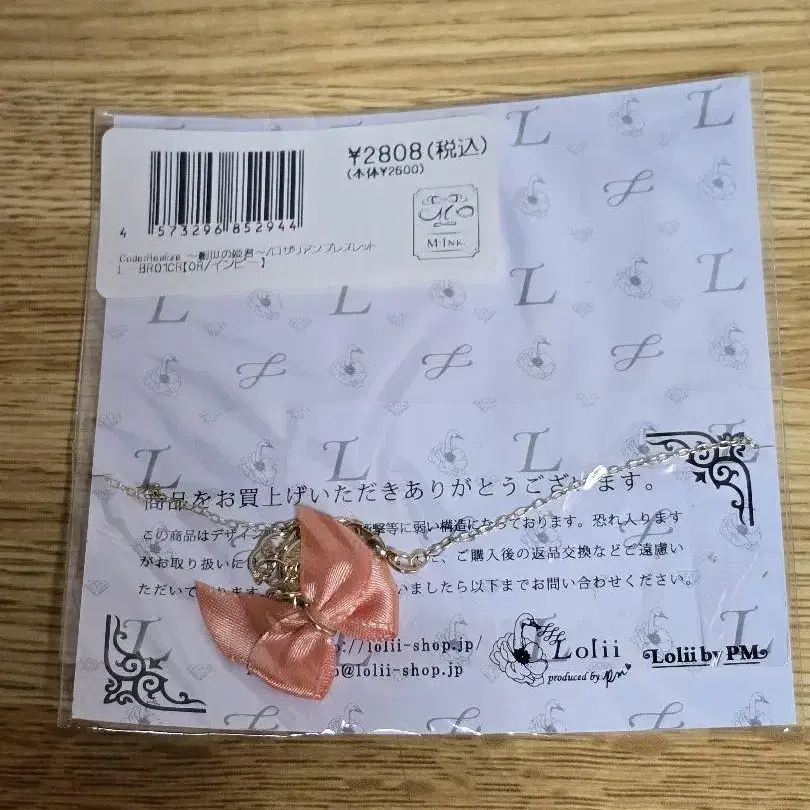 ¥2808(税込)
(本体¥2600)
4 573296 852944
Code:Realize ～創世の姫君～/ロザリアンブレスレット
L BR01CR【OR/インピー】
M Ink.
商品をお買上げいただきありがとうございます。
この商品はデザイ 衝撃等に弱い構造になっております。恐れ入ります
がお取り扱いに 、ご購入後の返品交換などご遠慮い
ただいております いましたら以下までお問い合わせください。
://lolii-shop.jp/
@lolii-shop.jp
Lolii
produced by
Lolii by PM